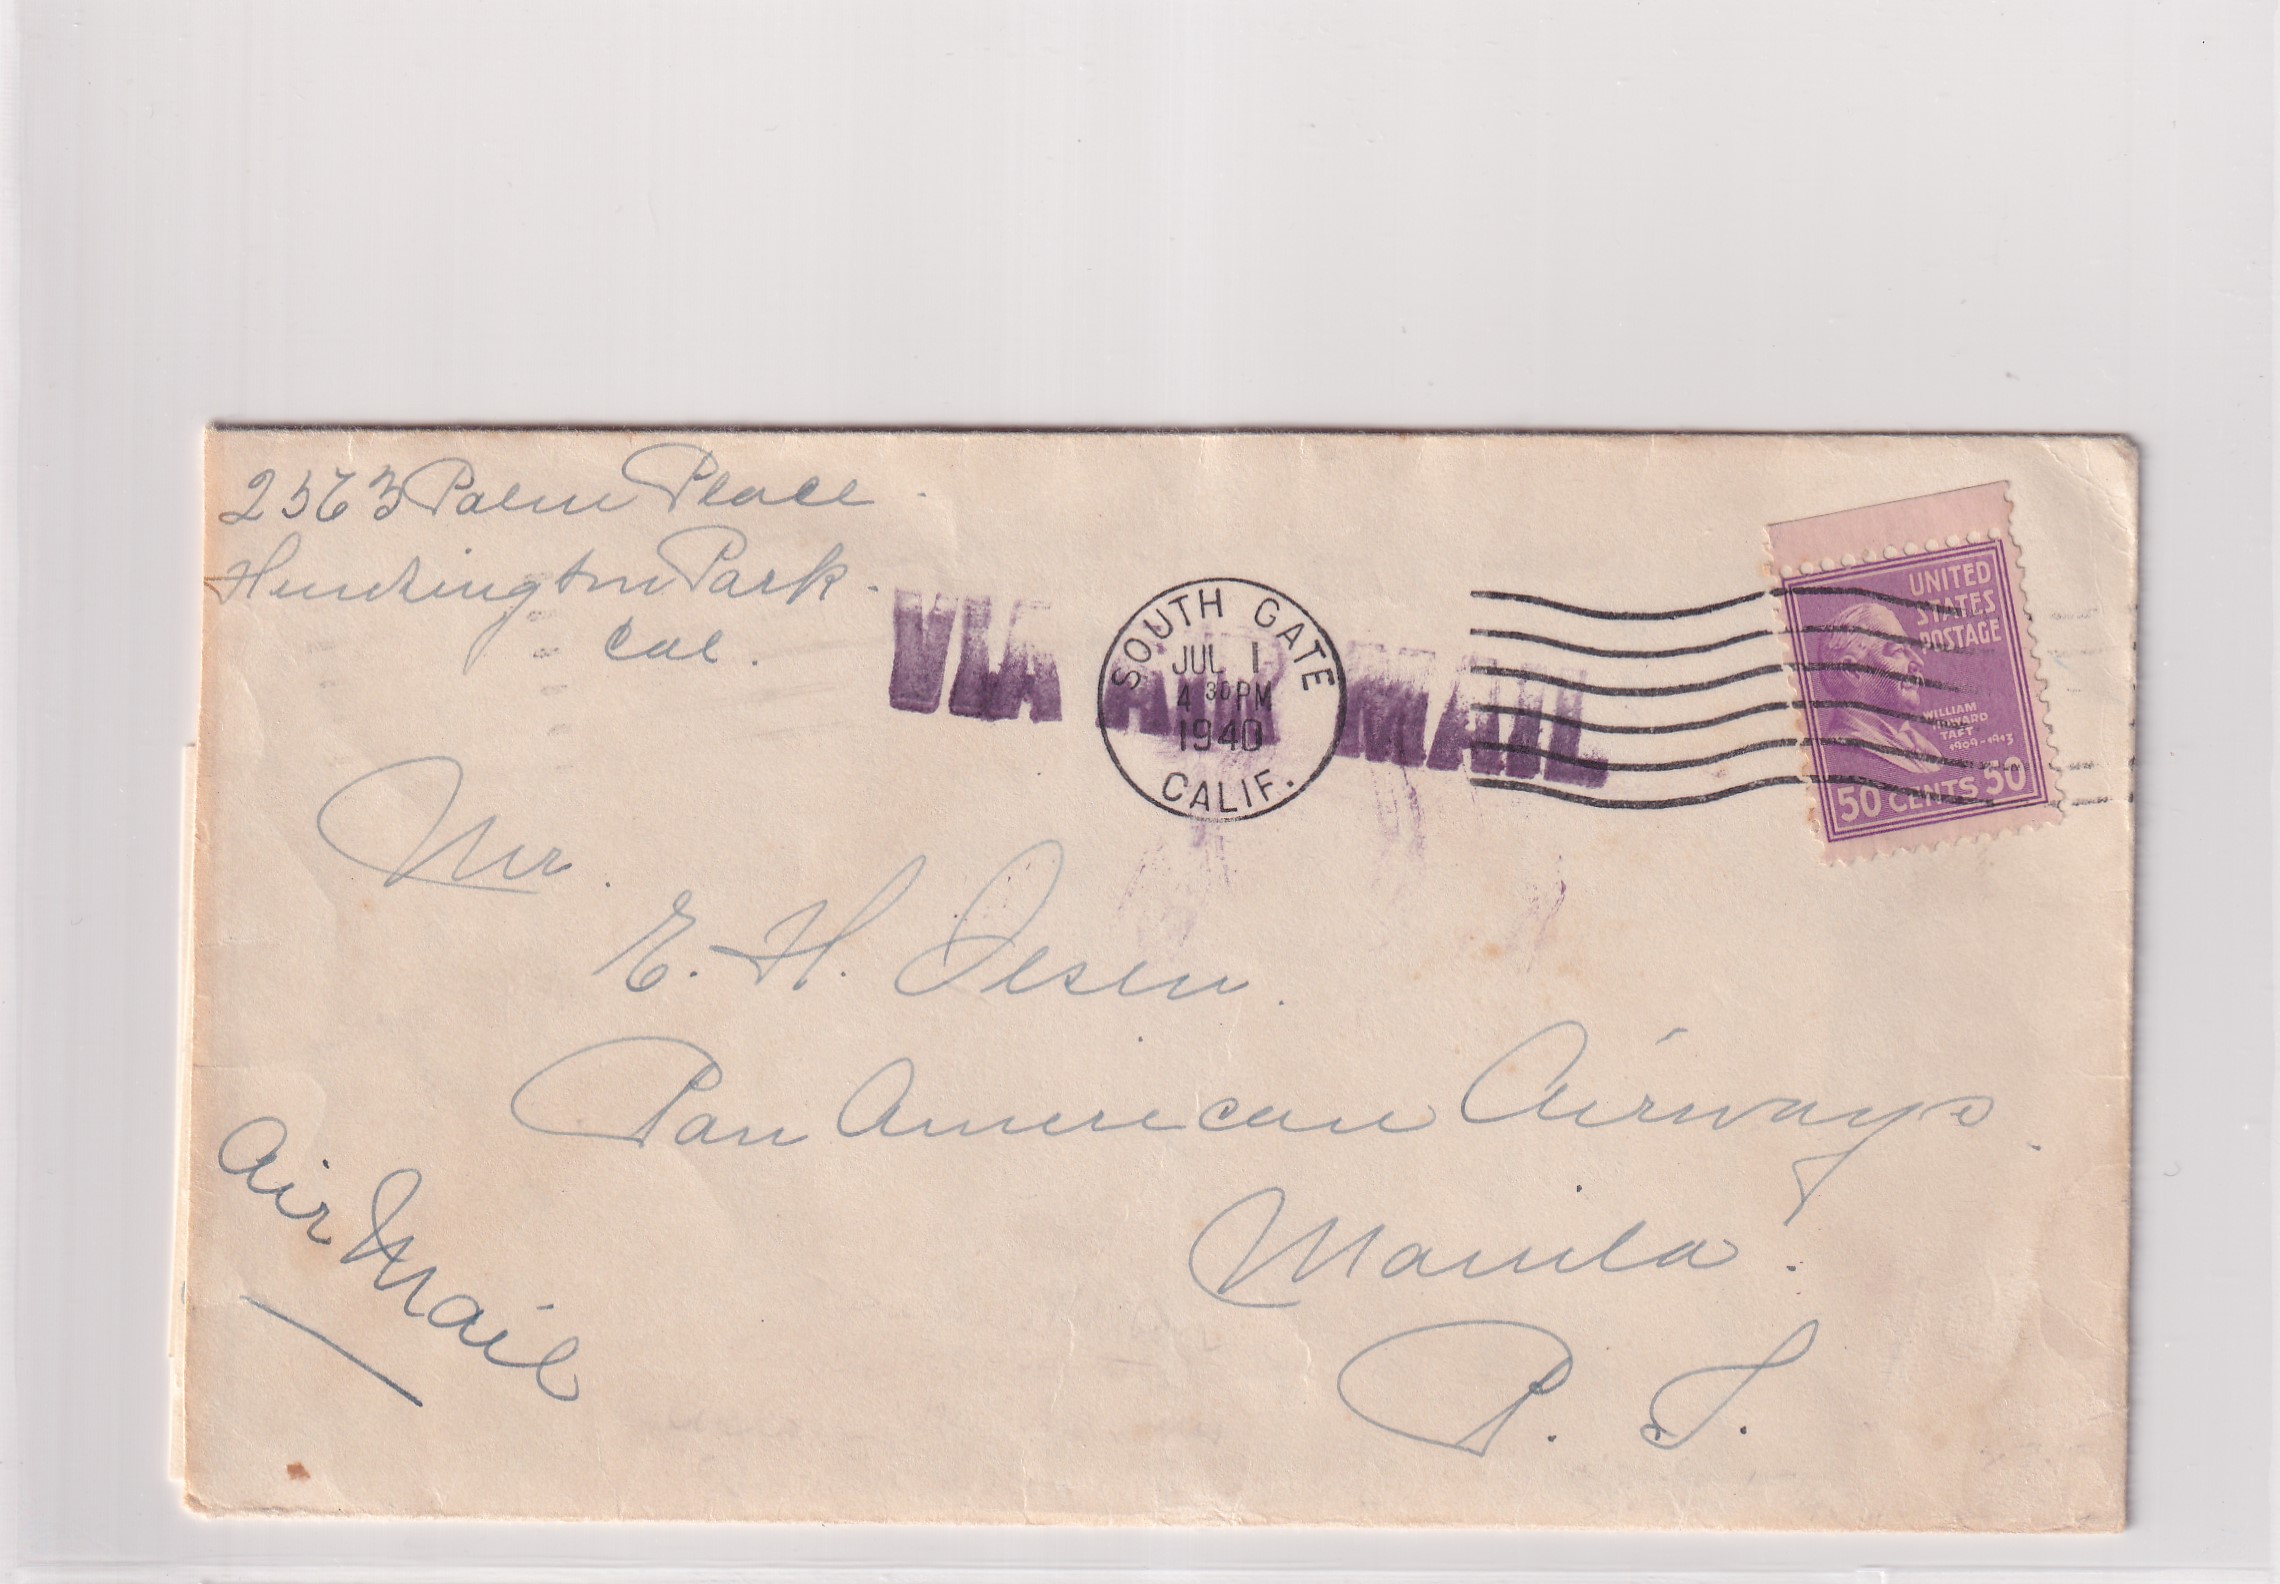 2563 Palm Place
Huntington Park
Cal.
VIA AIR MAIL
SOUTH GATE
JUL 1
4 30 PM
1940
CALIF.
UNITED
STATES
POSTAGE
WILLIAM
HOWARD
TAFT
1909-1913
50 CENTS 50
Mr.
E. H. Jesen.
Pan American Airways.
Manila.
P. I.
Air Mail